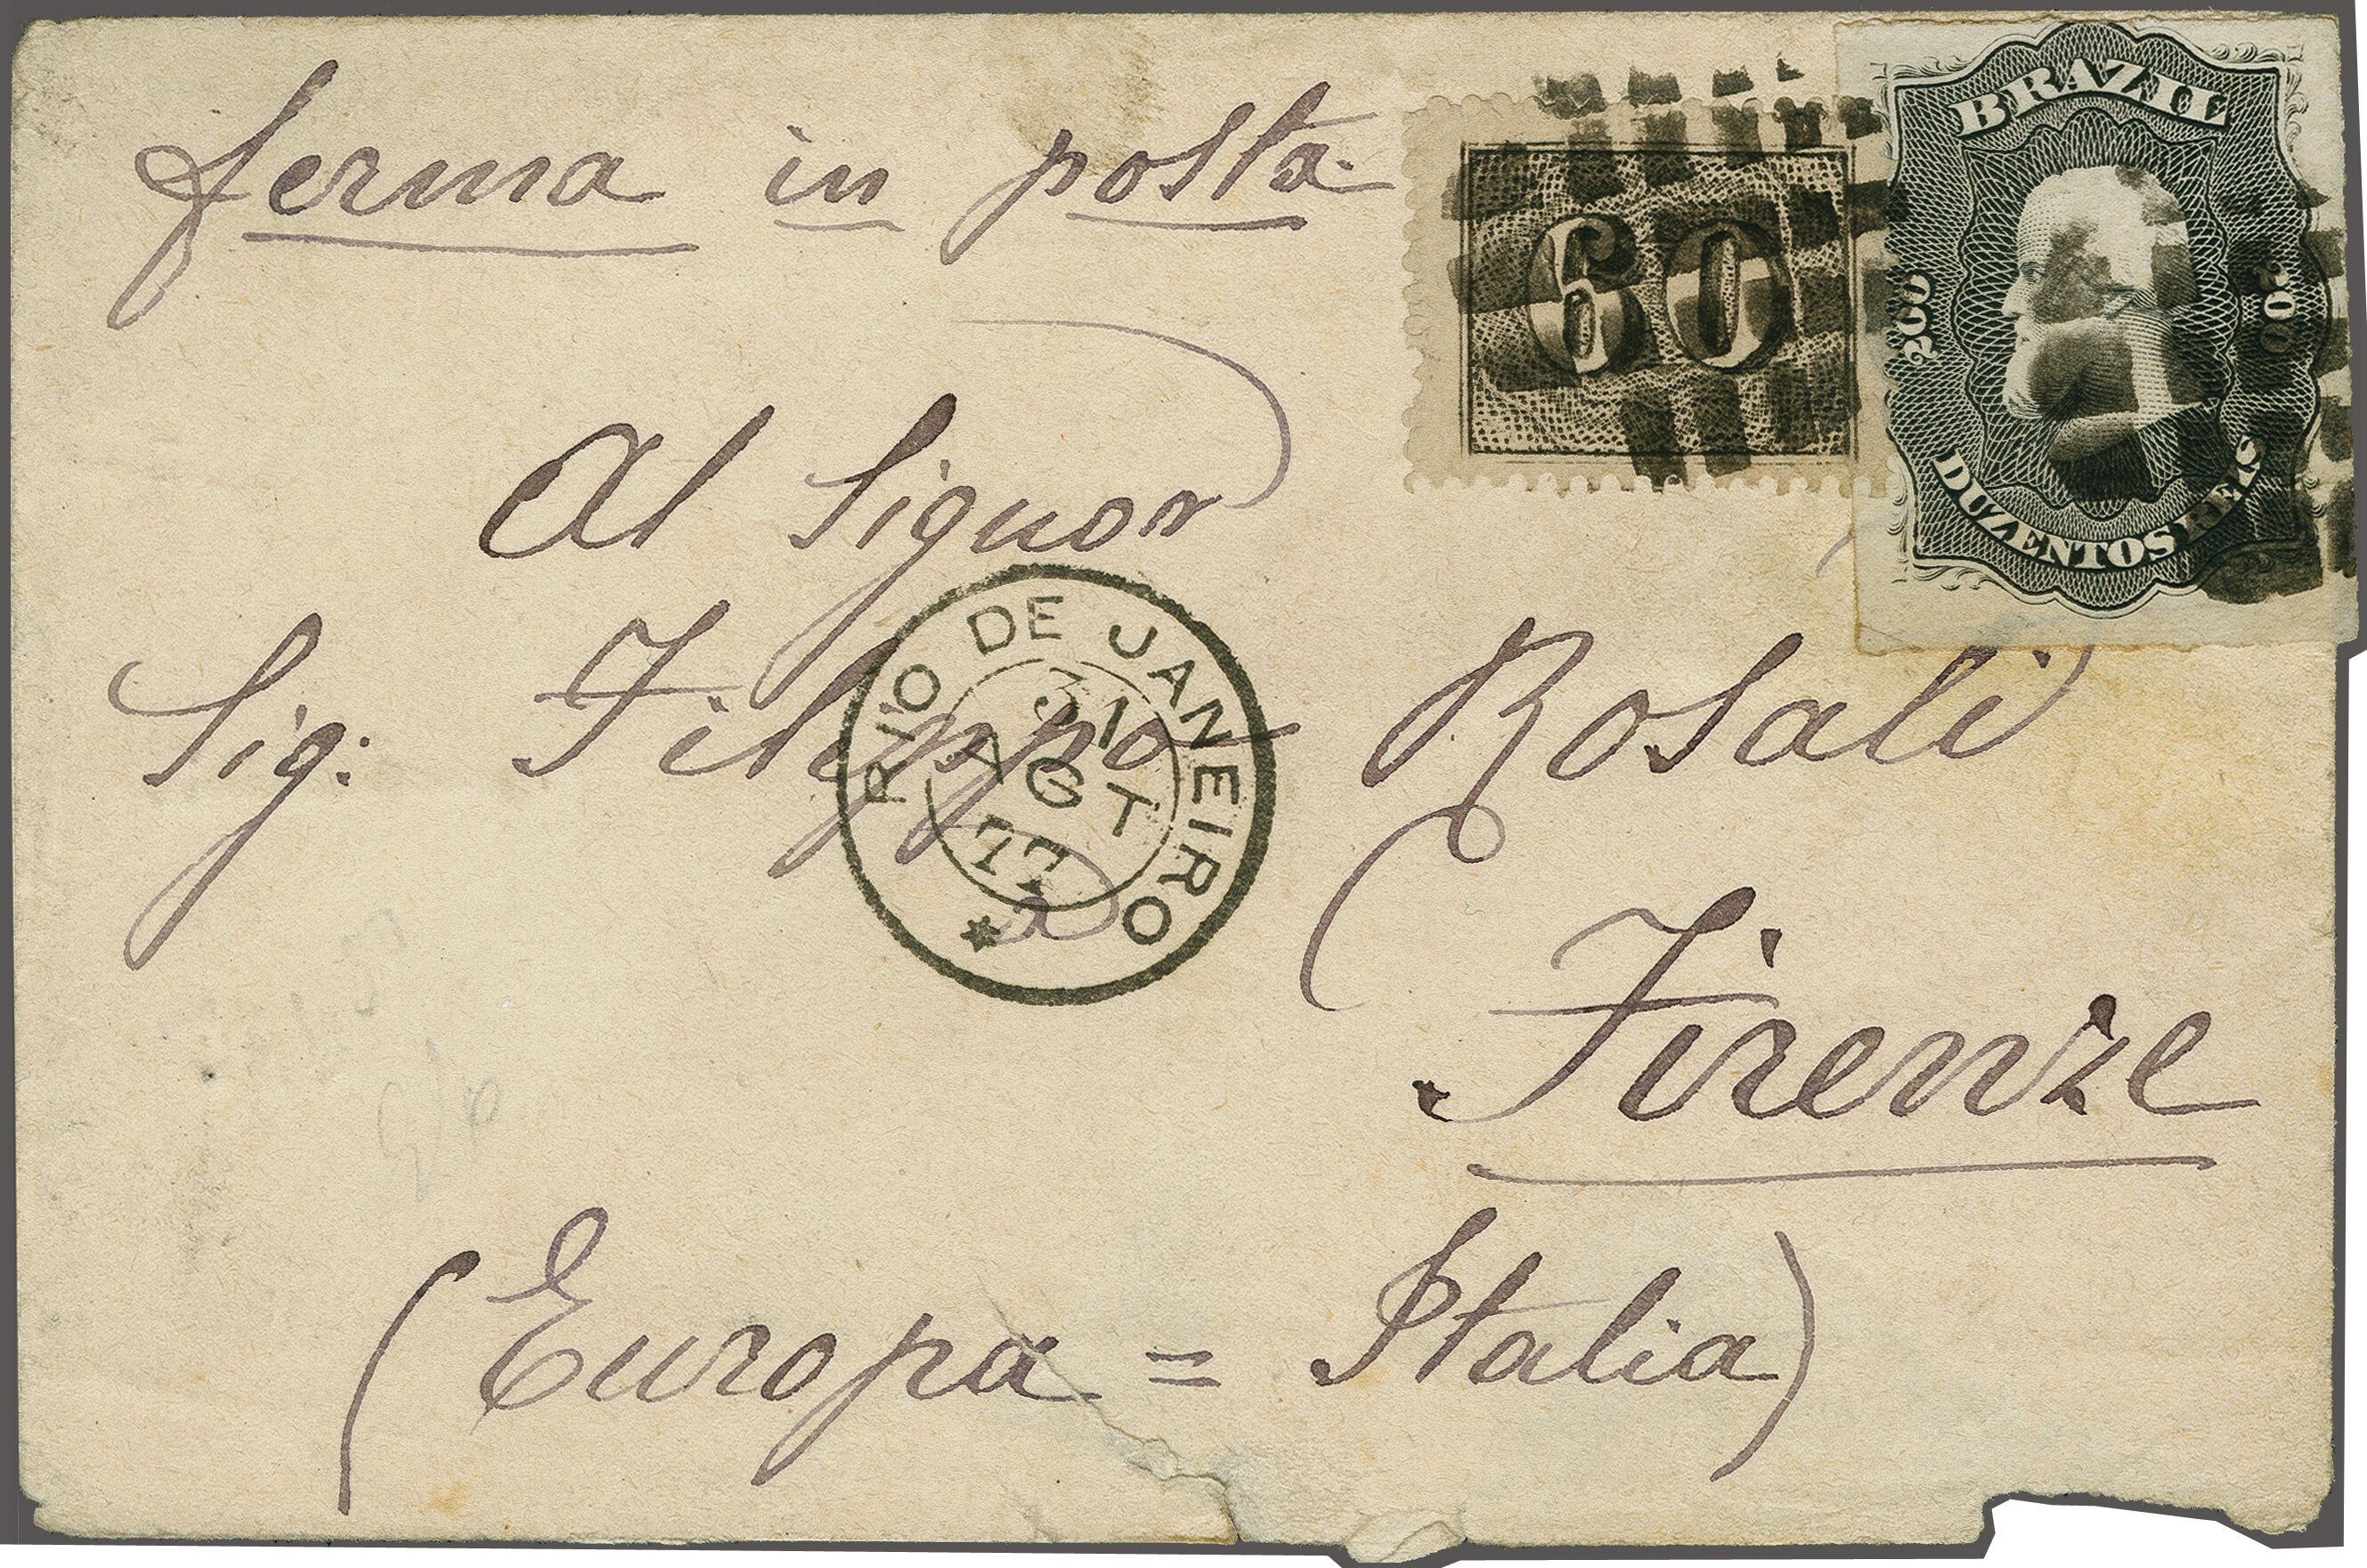 ferma in posta.
60
BRAZIL
200
200
DUZENTOS REIS
Al Signor
Sig: Filippo Rosali
RIO DE JANEIRO
31
AGT
77
Firenze
(Europa = Italia)